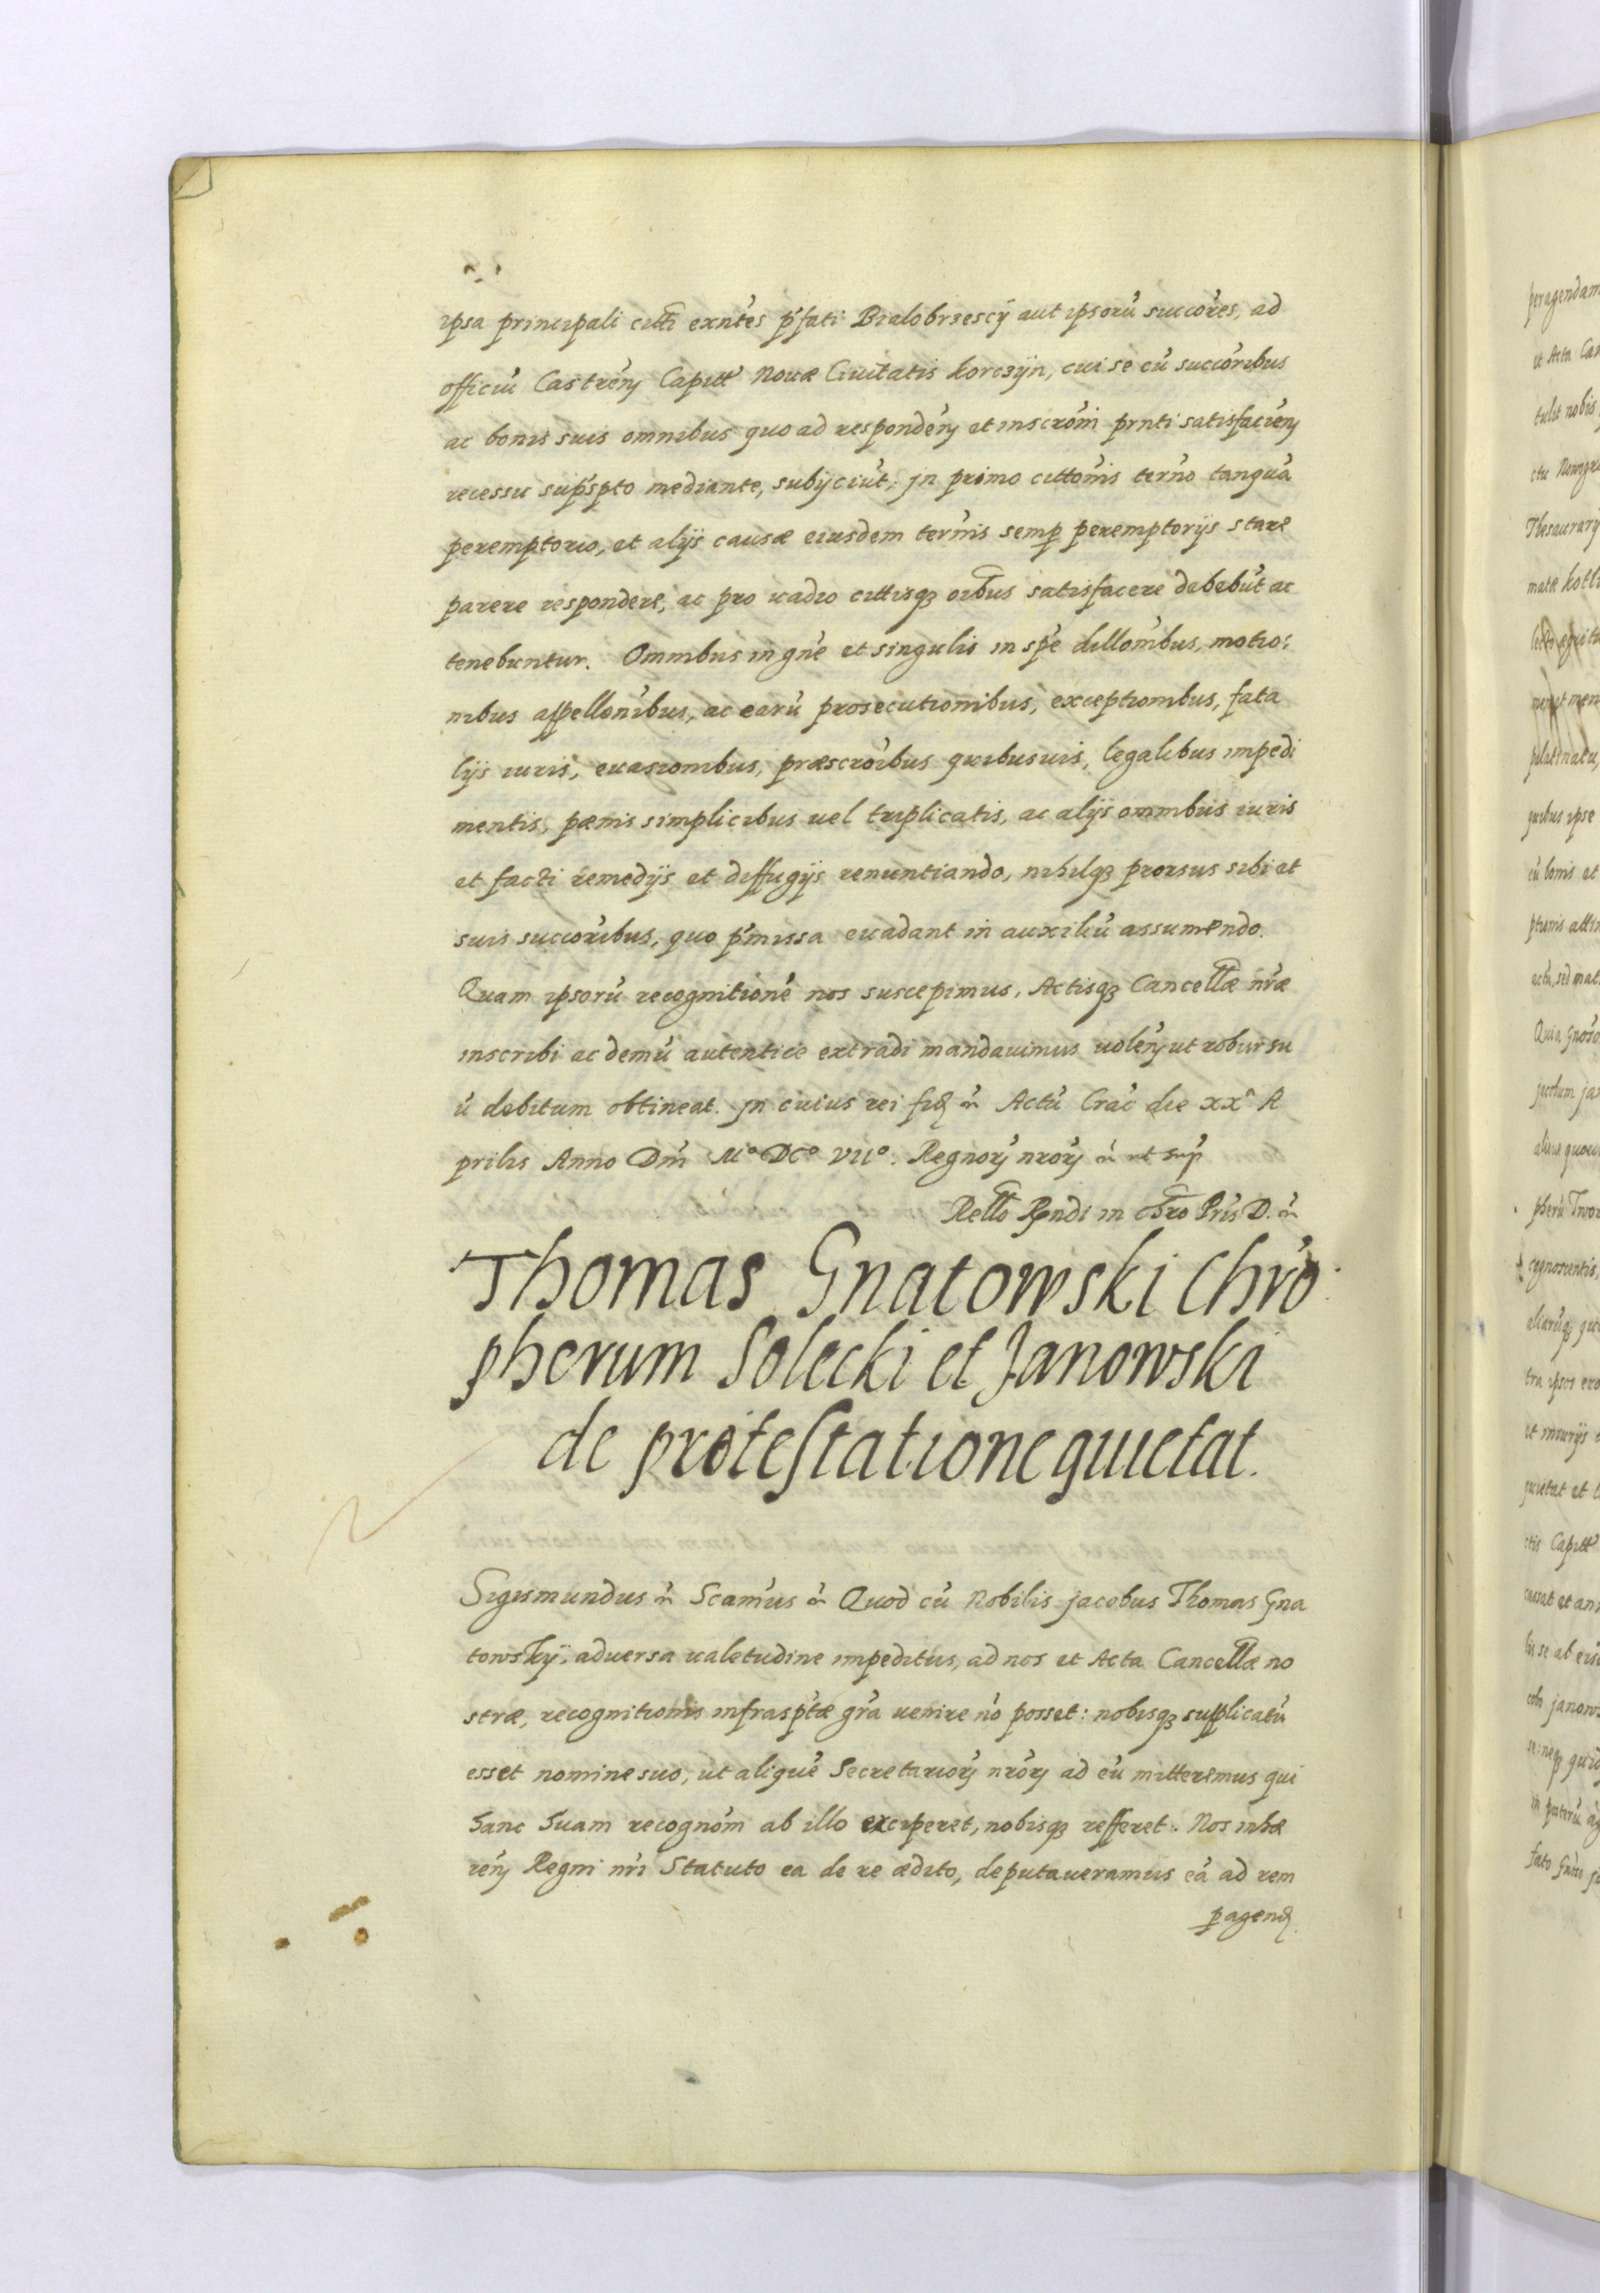 ipsa principali citti exnt̃es p̃fati Bialobrzescÿ aut ipsorũ succor̃es, ad
officiũ Castreñ Capitt̃ Novæ Civitatis Korczÿn, cui se cũ succor̃ibus
ac bonis suis omnibus quo ad respondeñ et inscrom̃i prnti satisfacieñ
recessu sup̃spto mediante, subÿciũt, jn primo cittom̃is term̃o tanquã
peremptorio, et alÿs causæ eiusdem term̃is semp peremptorÿs stare
parere respondere, ac pro vadio cittisqꝫ oĩbus satisfacere debebũt ac
tenebuntur. Omnibus in gñe et singulis in sp̃e dillom̃bus, motio:
nibus appellonĩbus, ac earũ prosecutionibus, exceptionibus, fata
lÿs iuris, evasionibus, præscroĩbus quibusvis, legalibus impedi
mentis, pænis simplicibus vel triplicatis, ac alÿs omnibus iuris
et facti remedÿs et diffugÿs renuntiando, nihilqꝫ prorsus sibi et
suis succor̃ibus, quo p̃missa evadant in auxiliũ assumendo.
Quam ipsorũ recognitionẽ nos suscepimus, Actisqꝫ Cancellæ nr̃æ
inscribi ac demũ autentice extradi mandavimus voleñ ut robur su
ũ debitum obtineat. jn cuius rei fid̃ etc̃ Actũ Crac̃ die xxᵃ A
prilis Anno Dm̃i Mᵒ DCᵒ VIIᵒ. Regnorꝝ nrorꝝ etc̃ ut sup̃
Rello Rndi in Chr̃o Pr̃is D. etc̃
Thomas Gnatowski Chrõ
pherum Solecki et Janowski
de protestatione quietat.
Sigismundus etc̃ Scam̃us etc̃ Quod cũ Nobilis jacobus Thomas Gna
towskÿ, adversa valetudine impeditus, ad nos et Acta Cancellæ no
stræ, recognitionis infrasp̃tæ gr̃a venire nõ posset: nobisqꝫ supplicatũ
esset nomine suo, ut aliquẽ Secretariorꝝ nrorꝝ ad eũ mitteremus qui
hanc suam recognõm ab illo exciperet, nobisqꝫ refferet. Nos inhæ
reñ Regni nr̃i Statuto ea de re ædito, deputaveramus eã ad rem
pagend̃